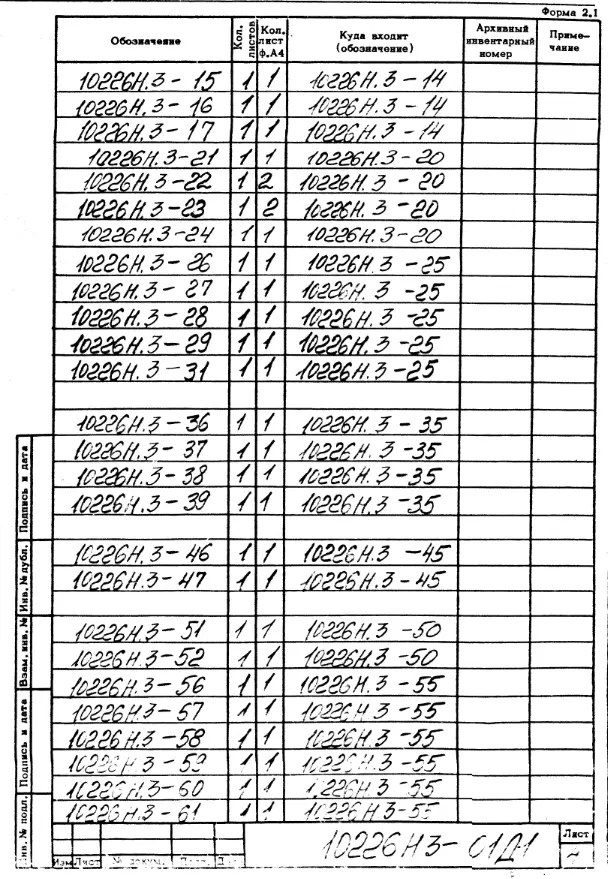 Форма 2.1
Обозначение Кол. листов Кол. лист ф.А4 Куда входит (обозначение) Архивный инвентарный номер Примечание
10226Н.3-15 1 1 10226Н.3-14
10226Н.3-16 1 1 10226Н.3-14
10226Н.3-17 1 1 10226Н.3-14
10226Н.3-21 1 1 10226Н.3-20
10226Н.3-22 1 2 10226Н.3-20
10226Н.3-23 1 2 10226Н.3-20
10226Н.3-24 1 1 10226Н.3-20
10226Н.3-26 1 1 10226Н.3-25
10226Н.3-27 1 1 10226Н.3-25
10226Н.3-28 1 1 10226Н.3-25
10226Н.3-29 1 1 10226Н.3-25
10226Н.3-31 1 1 10226Н.3-25
10226Н.3-36 1 1 10226Н.3-35
10226Н.3-37 1 1 10226Н.3-35
10226Н.3-38 1 1 10226Н.3-35
10226Н.3-39 1 1 10226Н.3-35
10226Н.3-46 1 1 10226Н.3-45
10226Н.3-47 1 1 10226Н.3-45
10226Н.3-51 1 1 10226Н.3-50
10226Н.3-52 1 1 10226Н.3-50
10226Н.3-56 1 1 10226Н.3-55
10226Н.3-57 1 1 10226Н 3-55
10226Н.3-58 1 1 10226Н.3-55
10226Н 3-59 1 1 10226Н.3-55
10226Н.3-60 1 1 226Н 3-55
10226Н.3-61 1 1 10226Н 3-55
Подпись и дата
Инв. № дубл.
Взам. инв. №
Подпись и дата
Инв. № подл.
Изм Лист № докум. Подп. Дата
10226Н3-01Д1
Лист
7